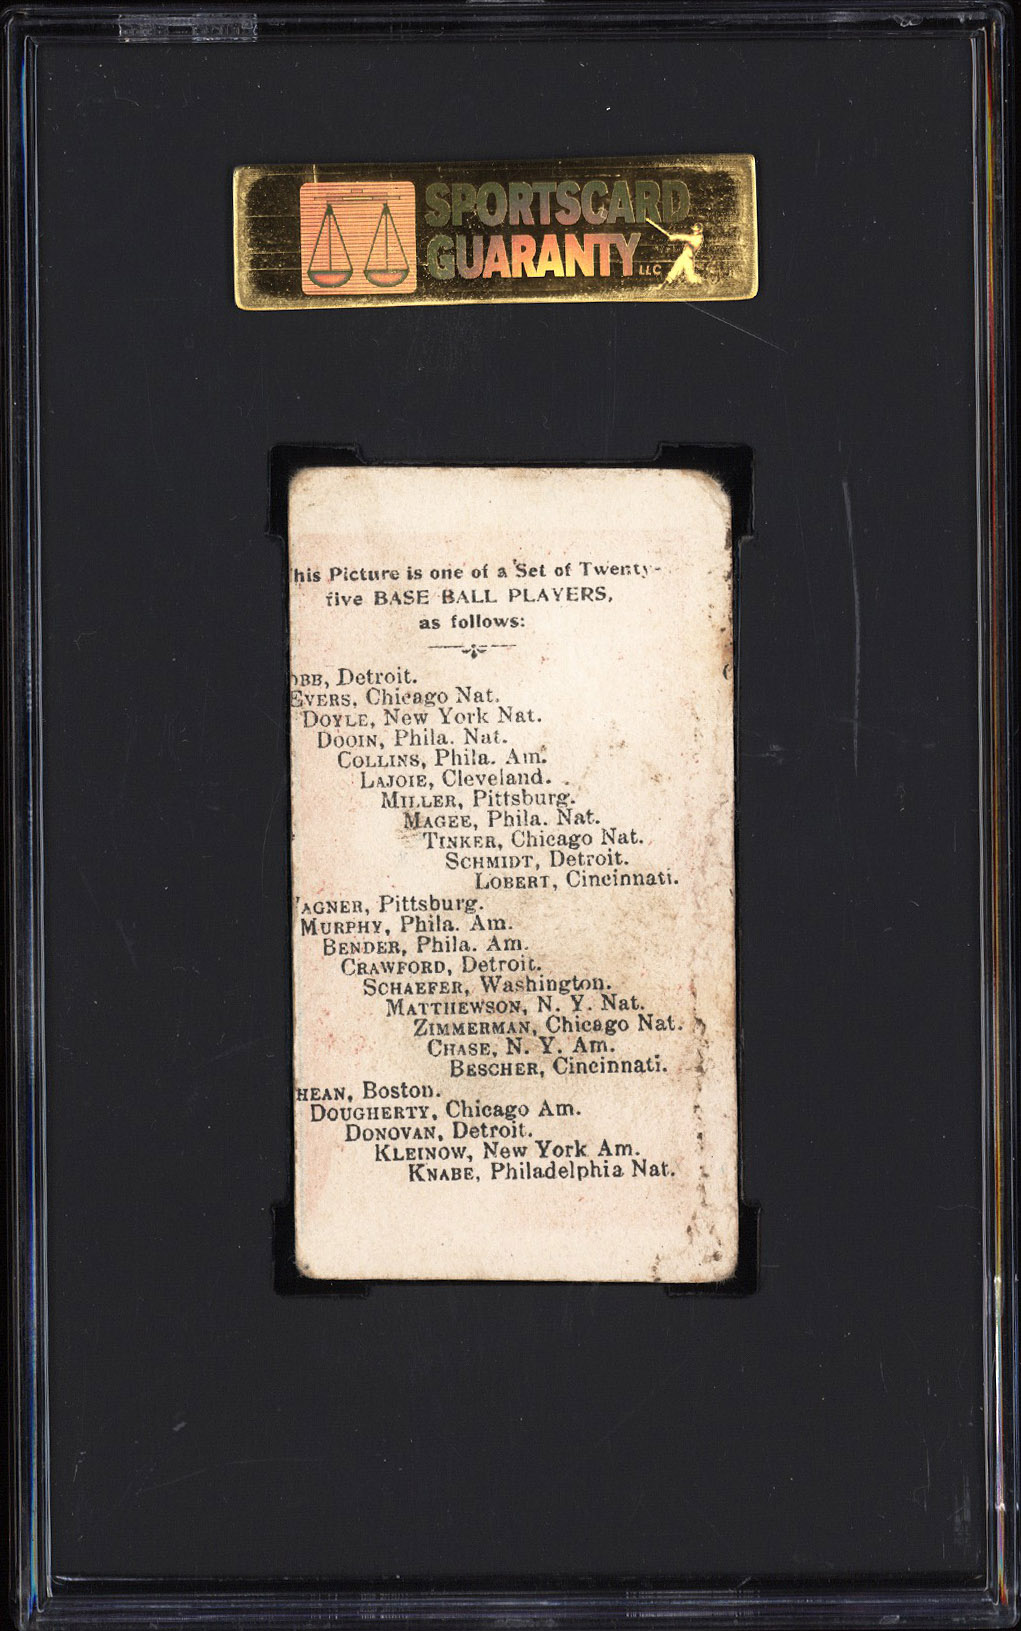 SPORTSCARD
GUARANTY LLC
his Picture is one of a Set of Twenty-
five BASE BALL PLAYERS,
as follows:
OBB, Detroit.
EVERS, Chicago Nat.
DOYLE, New York Nat.
DOOIN, Phila. Nat.
COLLINS, Phila. Am.
LAJOIE, Cleveland.
MILLER, Pittsburg.
MAGEE, Phila. Nat.
TINKER, Chicago Nat.
SCHMIDT, Detroit.
LOBERT, Cincinnati.
AGNER, Pittsburg.
MURPHY, Phila. Am.
BENDER, Phila. Am.
CRAWFORD, Detroit.
SCHAEFER, Washington.
MATTHEWSON, N. Y. Nat.
ZIMMERMAN, Chicago Nat.
CHASE, N. Y. Am.
BESCHER, Cincinnati.
HEAN, Boston.
DOUGHERTY, Chicago Am.
DONOVAN, Detroit.
KLEINOW, New York Am.
KNABE, Philadelphia Nat.